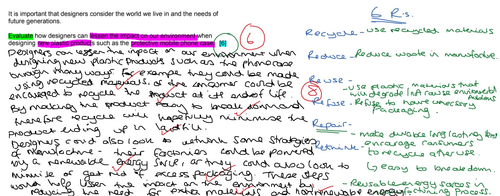 It is important that designers consider the world we live in and the needs of
future generations.
Evaluate how designers can lessen the impact on our environment when
designing new plastic products such as the protective mobile phone case. [6]
6
Designers can lessen the impact on our environment when
designing new plastic products such as the phone case
through many ways. For example they could be made
using recycled materials, or the consumer could be
encouraged to recycle the product at its end of life.
By making the product easy to break down and
therefore recycle will hopefully minimise the
product ending up in landfill.
Designers could also look to rethink some strategies
of manufacture - their factories could be powered
by a renewable energy source, or they could also look to
get rid of excess packaging. These steps
would help lessen the impact on the environment by
reducing the need for extra materials and non renewable energy
6 R's.
Recycle - use recycled materials
Reduce - Reduce waste in manufacture
Reuse -
- use plastic materials that
will degrade
8
Refuse - Refuse to have unnecessary
packaging.
Repair -
- make durable long lasting
Rethink - encourage consumers
to recycle after use
easy to break down
- Reusable energy sources in